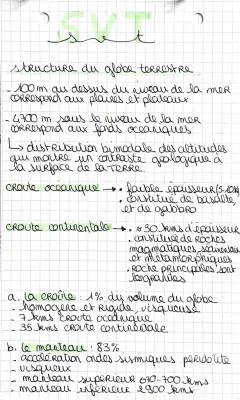 SVT
svt
structure du globe terrestre
- 100 m au dessus du niveau de la mer
correspond aux plaines et plateaux
- 4700 m sous le niveau de la mer
correspond aux fonds oceaniques
↳ distribution bimodale des altitudes
qui montre un contraste géologique à
la surface de la Terre.
croute oceanique → • faible épaisseur
• constitué de basalte
et de gabbro
croute continentale → • ≈ 30 kms d'épaisseur
• constituée de roches
magmatiques,
et métamorphiques
• roche principales sont
les granites
a. la croûte : 1% du volume du globe
- homogène et rigide, visqueuse
- 7 kms croute océanique
- 35 kms croute continentale
b. le manteau : 83%
- accélération ondes sismiques péridotite
- visqueux
- manteau supérieur 670-700 kms
- manteau inférieur 2900 kms